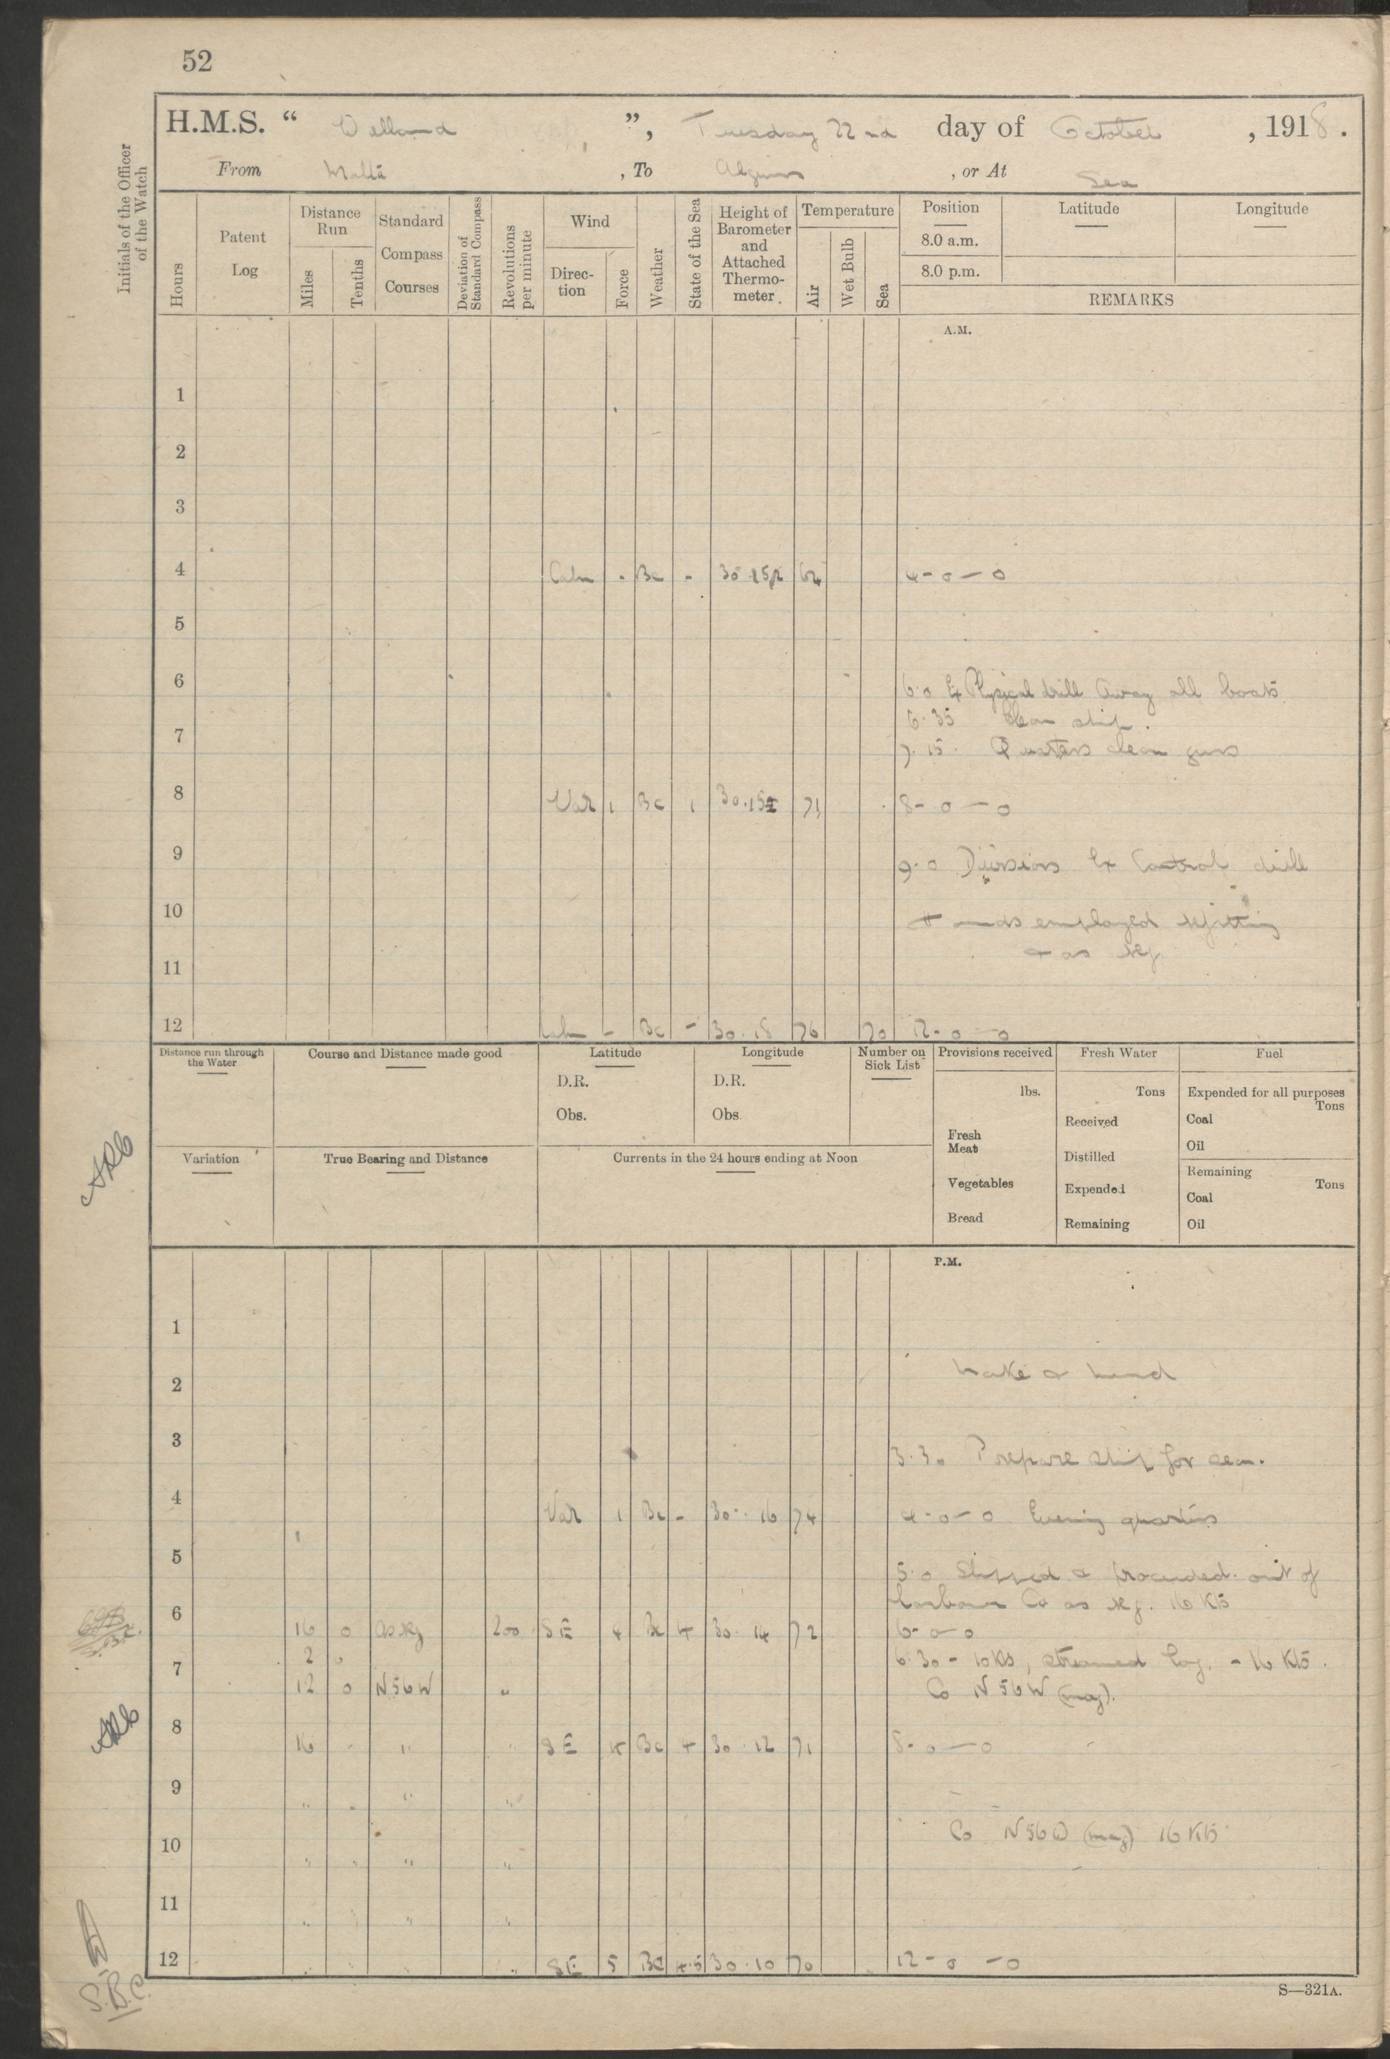 52
H.M.S. “ Welland ”, Tuesday 22nd day of October , 1918.
From Malta , To Algiers , or At Sea
Initials of the Officer of the Watch
Hours
Patent Log
Distance Run
Miles
Tenths
Standard Compass Courses
Deviation of Standard Compass
Revolutions per minute
Wind
Direc-tion
Force
Weather
State of the Sea
Height of Barometer and Attached Thermo-meter.
Temperature
Air
Wet Bulb
Sea
Position
8.0 a.m.
8.0 p.m.
Latitude
Longitude
REMARKS
A.M.
1
2
3
4 Calm - Bc - 64 4-0-0
5
6 6.0 Ex Physical drill Away all boats
6.35 Clean ship.
7 7.15. Quarters clean guns
8 Var 1 Bc 1 30.15 71 8-0-0
9 9.0 Divisions Ex Control drill
10 Hands employed refitting
& as req
11
12 Calm - Bc - 30.18 76 70 12-0-0
Distance run through the Water
Course and Distance made good
Latitude
D.R.
Obs.
Longitude
D.R.
Obs.
Number on Sick List
Provisions received
lbs.
Fresh Meat
Vegetables
Bread
Fresh Water
Tons
Received
Distilled
Expended
Remaining
Fuel
Expended for all purposes
Tons
Coal
Oil
Remaining
Tons
Coal
Oil
Variation
True Bearing and Distance
Currents in the 24 hours ending at Noon
P.M.
1
2 Make & mend
3 3.30 Prepare ship for sea.
4 Var 1 Bc - 30.16 74 4-0-0 Evening quarters
5 5.0 Slipped & proceeded out of
harbour Co as req. 16 Kts
6 16 0 as req 200 SE 4 Bc 4 30.14 72 6-0-0
2 0 6.30 - 10 Kts, streamed log. - 16 Kts.
7 12 0 N56W " Co N 56 W (mag).
8 16 - " " SE 5 Bc 4 30.12 71 8-0-0
9 " - " "
Co N56W (mag) 16 Kts
10 " " " "
11 " " "
12 " SE 5 Bc 4.5 30.10 70 12-0-0
S.B.C.
S—321A.